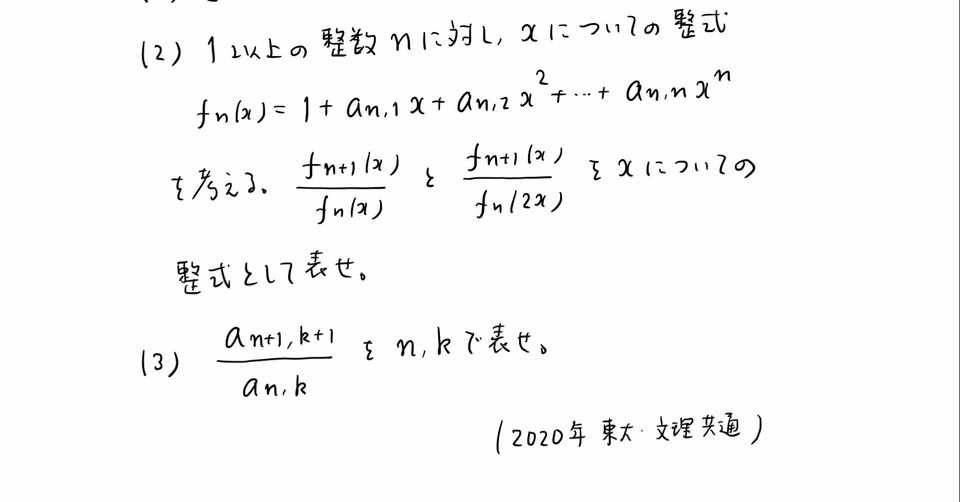 (2) 1以上の整数nに対し, xについての整式
fn(x) = 1 + an,1 x + an,2 x² + … + an,n xⁿ
を考える、 fn+1(x)/fn(x) と fn+1(x)/fn(2x) を xについての
整式として表せ。
(3) an+1,k+1/an,k を n, k で表せ。
(2020年 東大・文理共通)